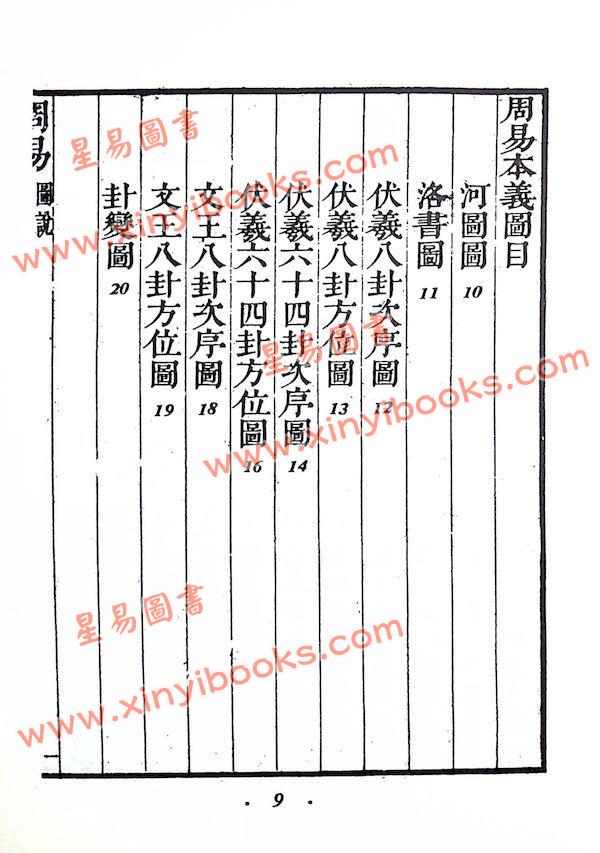 周易本義圖目
河圖圖 10
洛書圖 11
伏羲八卦次序圖 12
伏羲八卦方位圖 13
伏羲六十四卦次序圖 14
伏羲六十四卦方位圖 16
文王八卦次序圖 18
文王八卦方位圖 19
卦變圖 20
周易 圖說
一
· 9 ·
星易圖書
www.xinyibooks.com
星易圖書
www.xinyibooks.com
星易圖書
www.xinyibooks.com